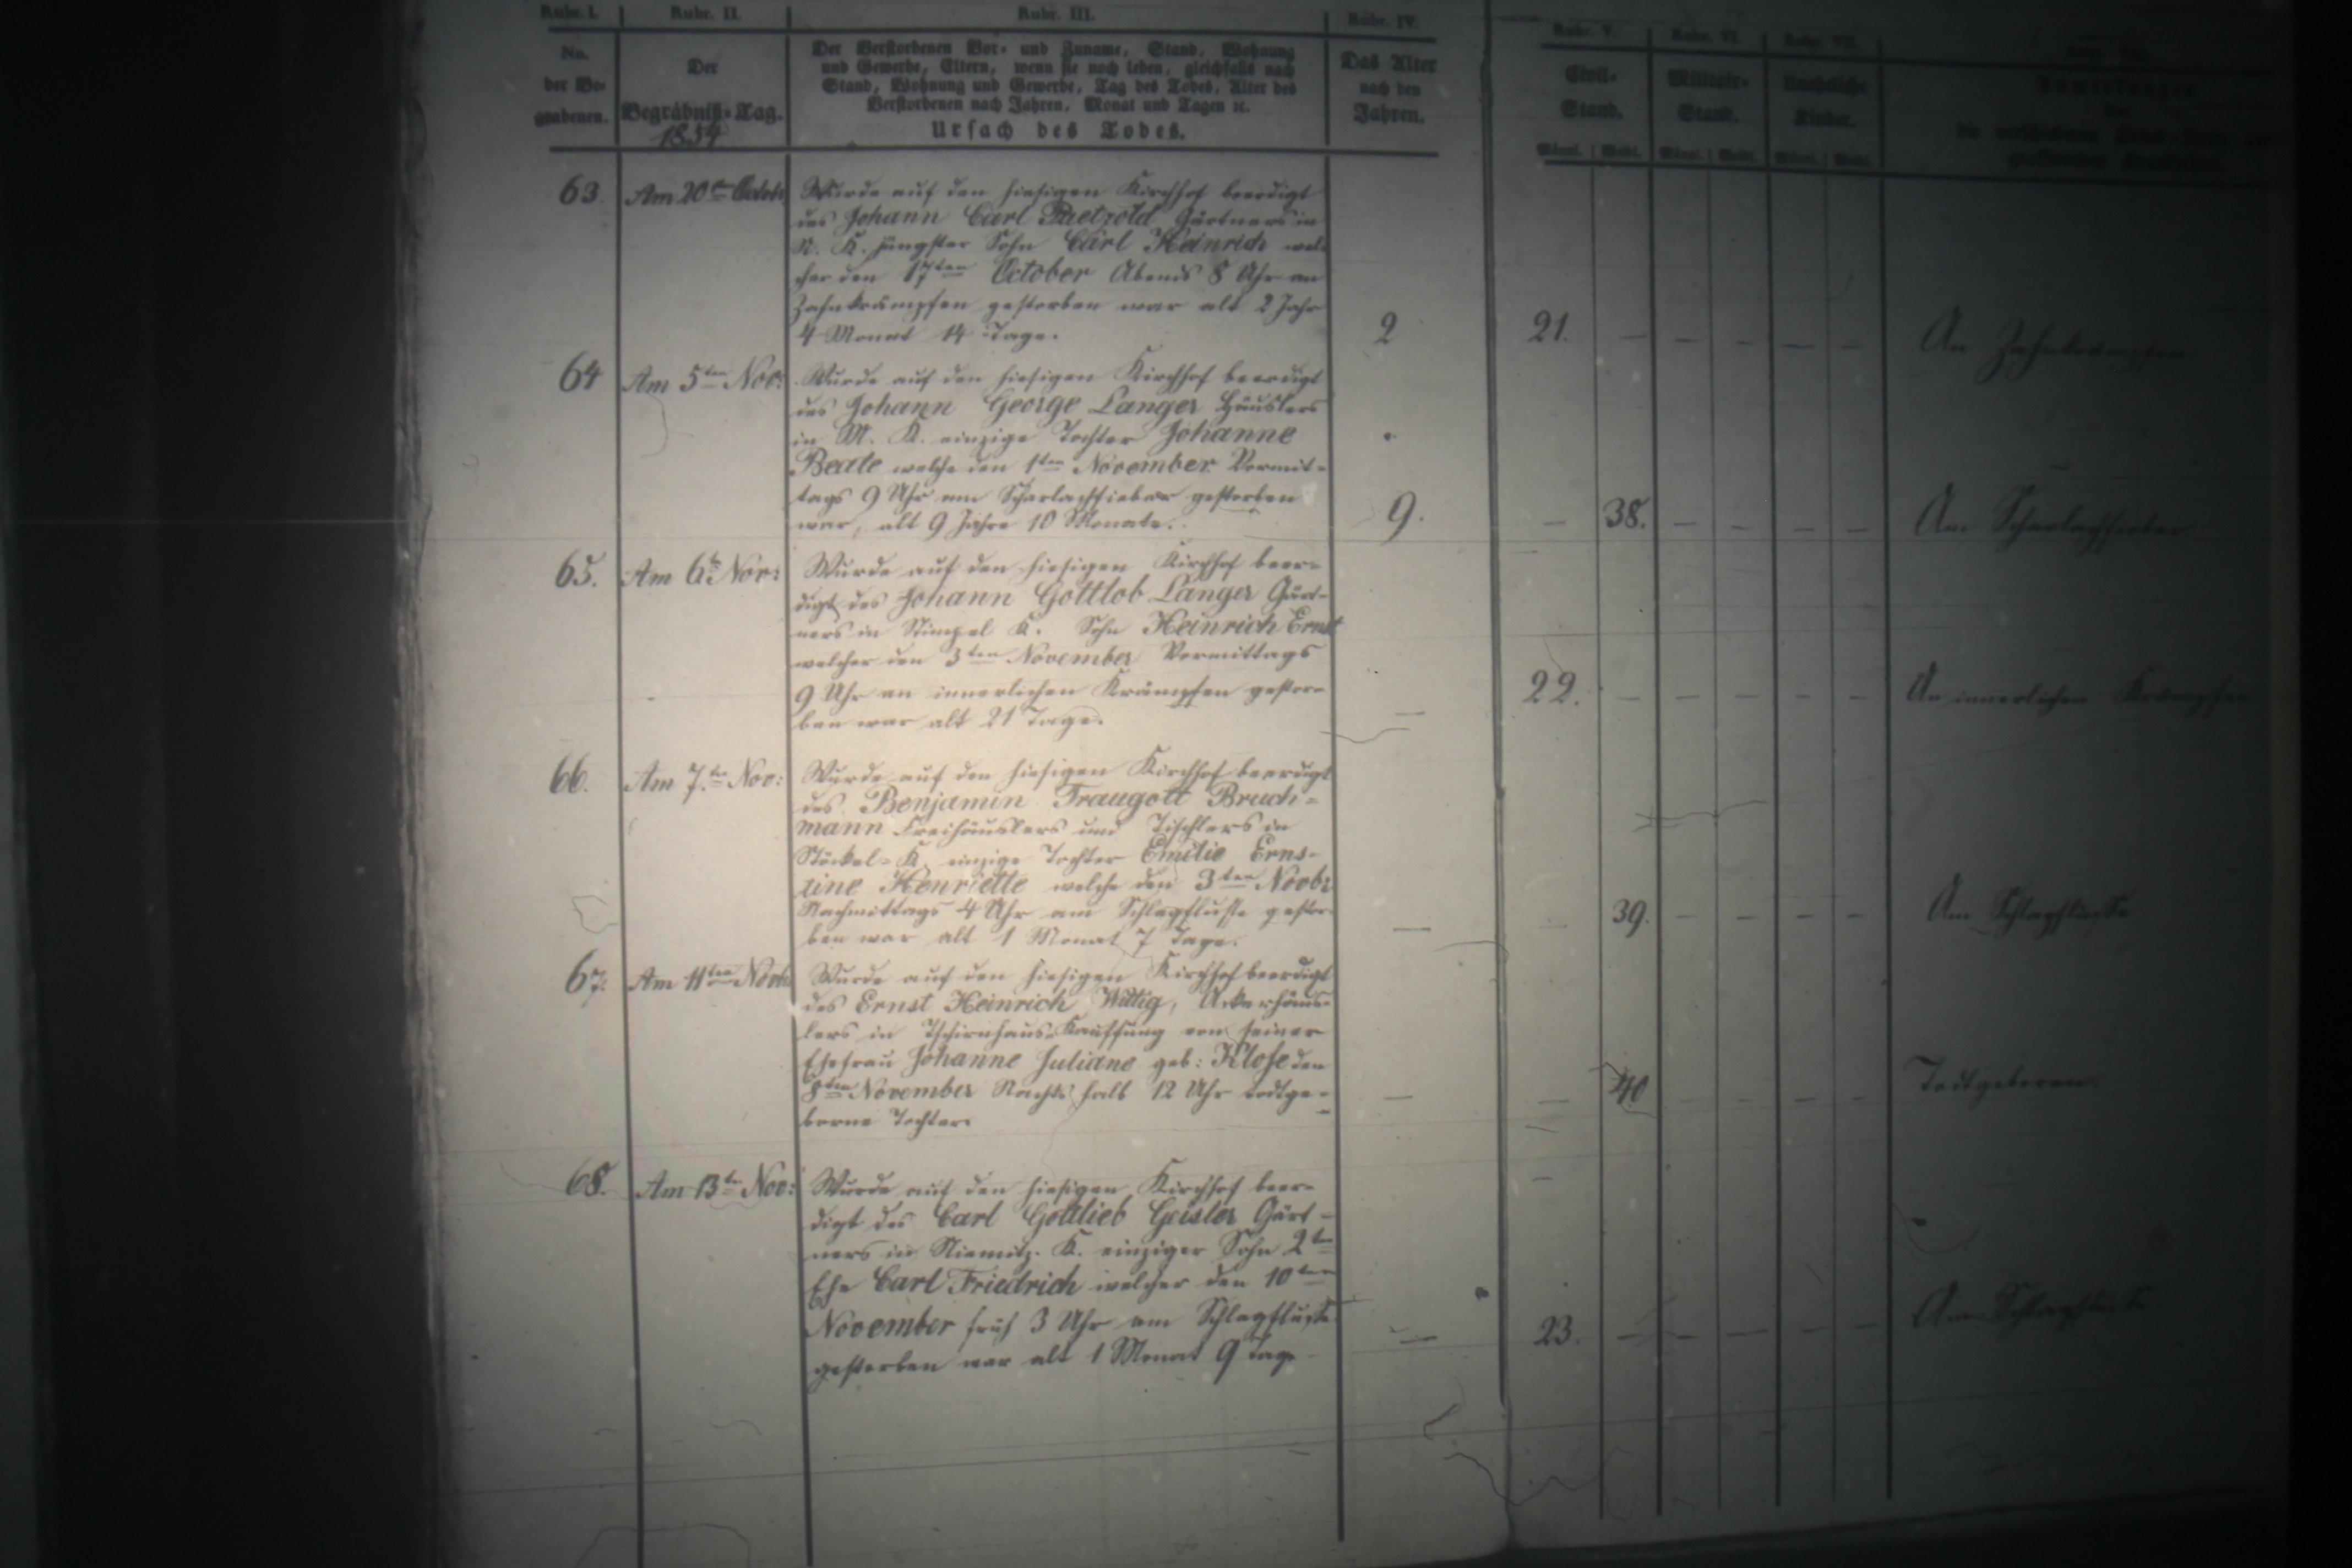 Rubr. I.
Rubr. II.
Rubr. III.
Rubr. IV.
Rubr. V.
Rubr. VI.
Rubr. VII.
No.
der Be-
grabenen.
Der
Begräbniß-Tag.
1854
Der Verstorbenen Vor- und Zuname, Stand, Wohnung
und Gewerbe, Eltern, wenn sie noch leben, gleichfalls nach
Stand, Wohnung und Gewerbe, Tag des Todes, Alter des
Verstorbenen nach Jahren, Monat und Tagen ꝛc.
Ursach des Todes.
Das Alter
nach den
Jahren.
Civil-
Stand.
Männl. Weibl.
Militair-
Stand.
Männl. Weibl.
Uneheliche
Kinder.
Männl. Weibl.
Anmerkungen
63. Am 20ten Octobr
Wurde auf den hiesigen Kirchhof beerdigt
des Johann Carl Paetzold Gärtners in
N. K. jüngster Sohn Carl Heinrich wel-
cher den 17ten October Abends 8 Uhr an
Zahnkrämpfen gestorben war alt 2 Jahr
4 Monat 14 Tage.
2 21. — — — — —
An Zahnkrämpfen
64 Am 5ten Nov:
Wurde auf den hiesigen Kirchhof beerdigt
des Johann George Langer Häuslers
in M. K. einzige Tochter Johanne
Beate welche den 1ten November Vormit-
tags 9 Uhr am Scharlachfieber gestorben
war, alt 9 Jahre 10 Monate.
9. — 38. — — — —
Am Scharlachfieber
65. Am 6t Nov:
Wurde auf den hiesigen Kirchhof beer-
digt des Johann Gottlob Langer Gärt-
ners in Stimpel K. Sohn Heinrich Ernst
welcher den 3ten November Vormittags
9 Uhr an innerlichen Krämpfen gestor-
ben war alt 21 Tage.
— 22. — — — — —
An innerlichen Krämpfen
66. Am 7.ten Nov:
Wurde auf den hiesigen Kirchhof beerdigt
des Benjamin Traugott Bruch-
mann Freihäuslers und Tischlers in
Stöckel-K. einzige Tochter Emilie Erns-
tine Henriette welche den 3ten Novbr
Nachmittags 4 Uhr am Schlagflusse gestor-
ben war alt 1 Monat 7 Tage.
— — 39. — — — —
Am Schlagflusse
67. Am 11ten Novb
Wurde auf den hiesigen Kirchhof beerdigt
des Ernst Heinrich Wittig, Ackerhäus-
lers in Tschirnhaus-Kauffung von seiner
Ehefrau Johanne Juliane geb: Klose den
8ten November Nachts halb 12 Uhr todtge-
borne Tochter.
— — 40 — — — —
Todtgeboren.
68. Am 13ten Nov:
Wurde auf den hiesigen Kirchhof beer-
digt des Carl Gottlieb Geisler Gärt-
ners in Niemitz. K. einziger Sohn 2ter
Ehe Carl Friedrich welcher den 10ten
November früh 3 Uhr am Schlagflusse
gestorben war alt 1 Monat 9 Tage
— 23. — — — — —
Am Schlagflusse